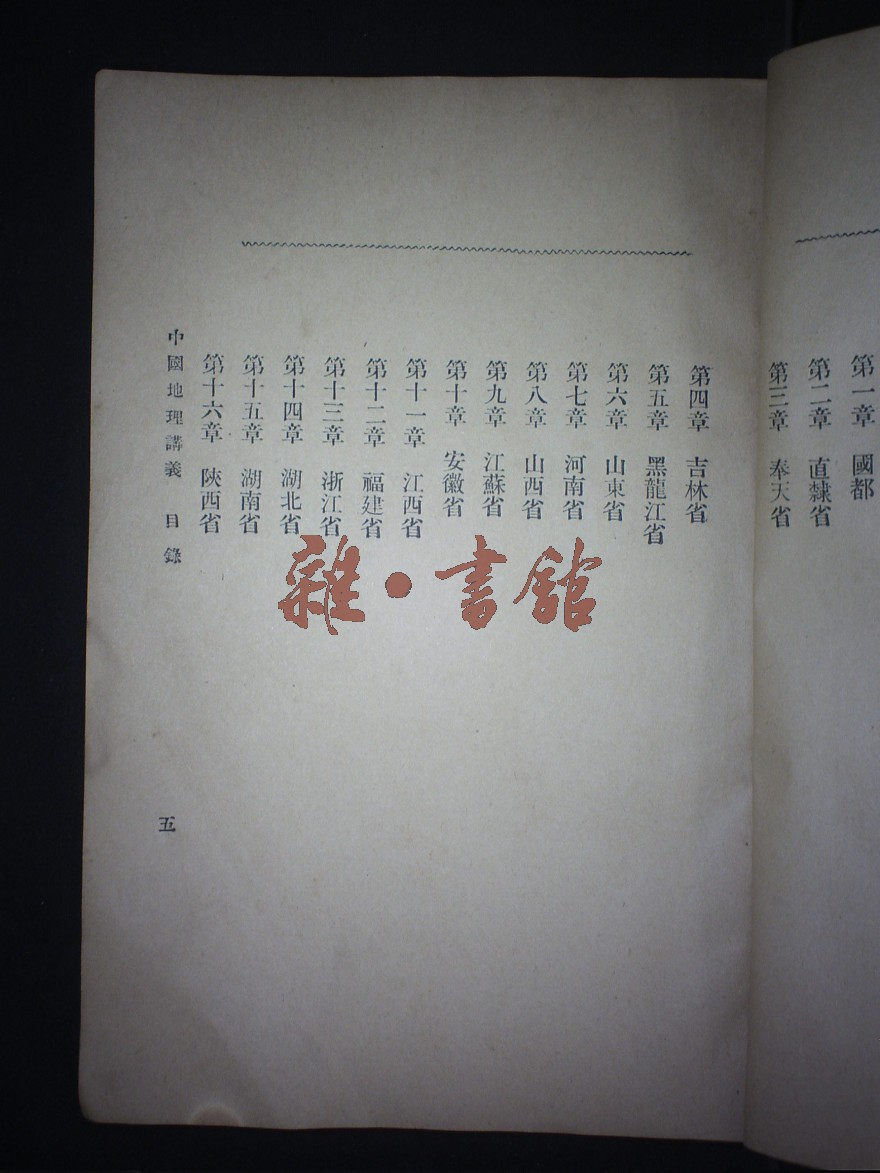 第一章 國都
第二章 直隸省
第三章 奉天省
第四章 吉林省
第五章 黑龍江省
第六章 山東省
第七章 河南省
第八章 山西省
第九章 江蘇省
第十章 安徽省
第十一章 江西省
第十二章 福建省
第十三章 浙江省
第十四章 湖北省
第十五章 湖南省
第十六章 陝西省
中國地理講義 目錄
五
雜·書館